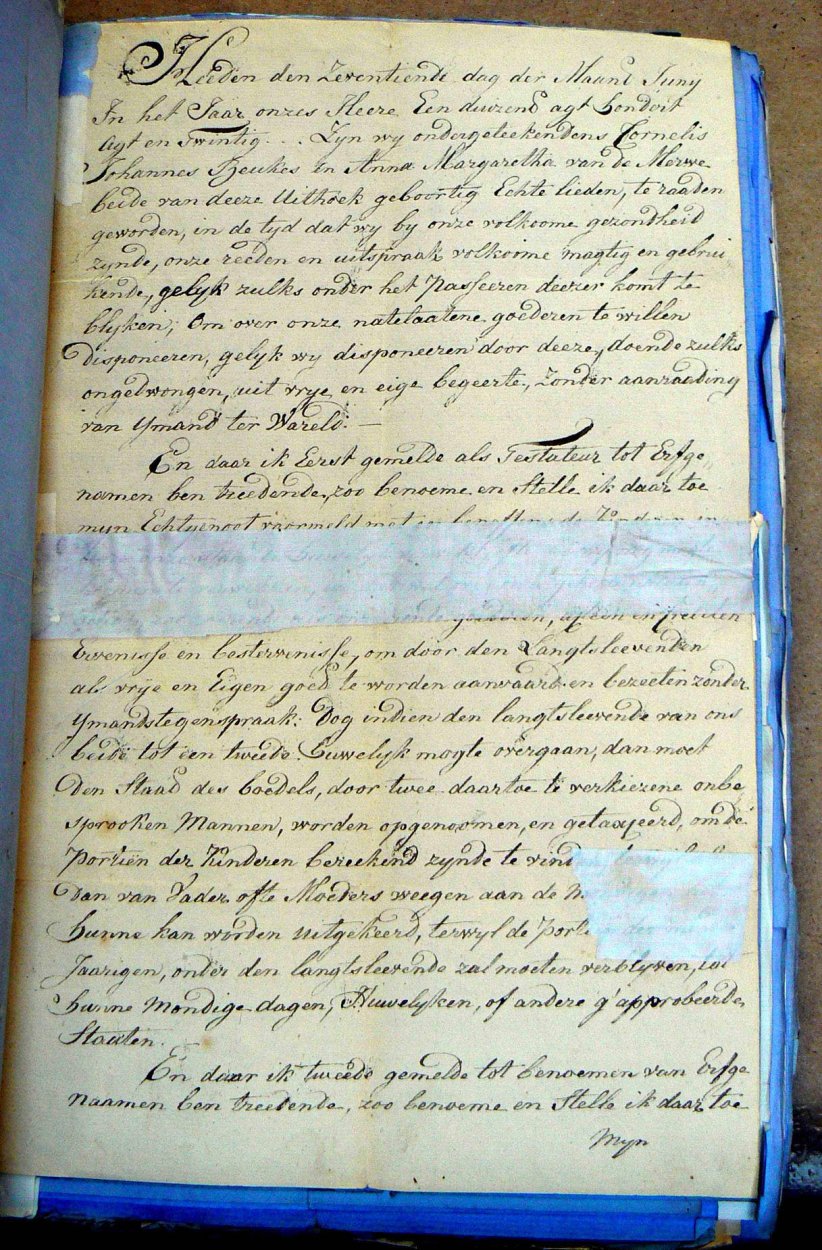 Heeden den Zeventiende dag der Maand Juny
In het Jaar onzes Heere Een duizend agt hondert
agt en twintig . . . Zyn wy ondergeteekendens Cornelis
Johannes Beukes en Anna Margaretha van de Merwe
beide van deeze Uithoek geboortig Echte lieden, te raaden
geworden, in de tyd dat wy by onze volkoome gezondheid
zynde, onze reeden en uitspraak volkoome magtig en gebrui
kende, gelyk zulks onder het Passeeren deezer komt te
blyken; Om over onze natelaatene goederen te willen
disponeeren, gelyk wy disponeeren door deeze, doende zulks
ongedwongen, uit vrye en eige begeerte, zonder aanraading
van ymand ter Wareld. —
En daar ik Eerst gemelde als Testateur tot Erfge
namen ben treedende, zoo benoeme en Stelle ik daar toe
myn Echtgenoot voormeld met en beneffens de Kinderen in
goederen,
Ervenisse en bestervenisse, om door den Langtsleevenden
als vrije en Eigen goed te worden aanvaard en bezeeten zonder
ymands tegenspraak: Dog indien den langtsleevende van ons
beide tot een tweede huwelyk mogte overgaan, dan moet
den Staad des boedels, door twee daartoe te verkiezene onbe
sprooken Mannen, worden opgenoomen, en getaxeerd, om de
Portiën der Kinderen bereekend zynde te vinden
dan van Vader ofte Moeders weegen aan de
hunne kan worden uitgekeerd, terwyl de
Jaarigen, onder den langtsleevende zal moeten verblyven, tot
hunne mondige dagen, Huwelyken, of andere g'approbeerde
Staaten. —
En daar ik tweede gemelde tot benoemen van Erfge
naamen ben treedende, zoo benoeme en Stelle ik daar toe
Myn